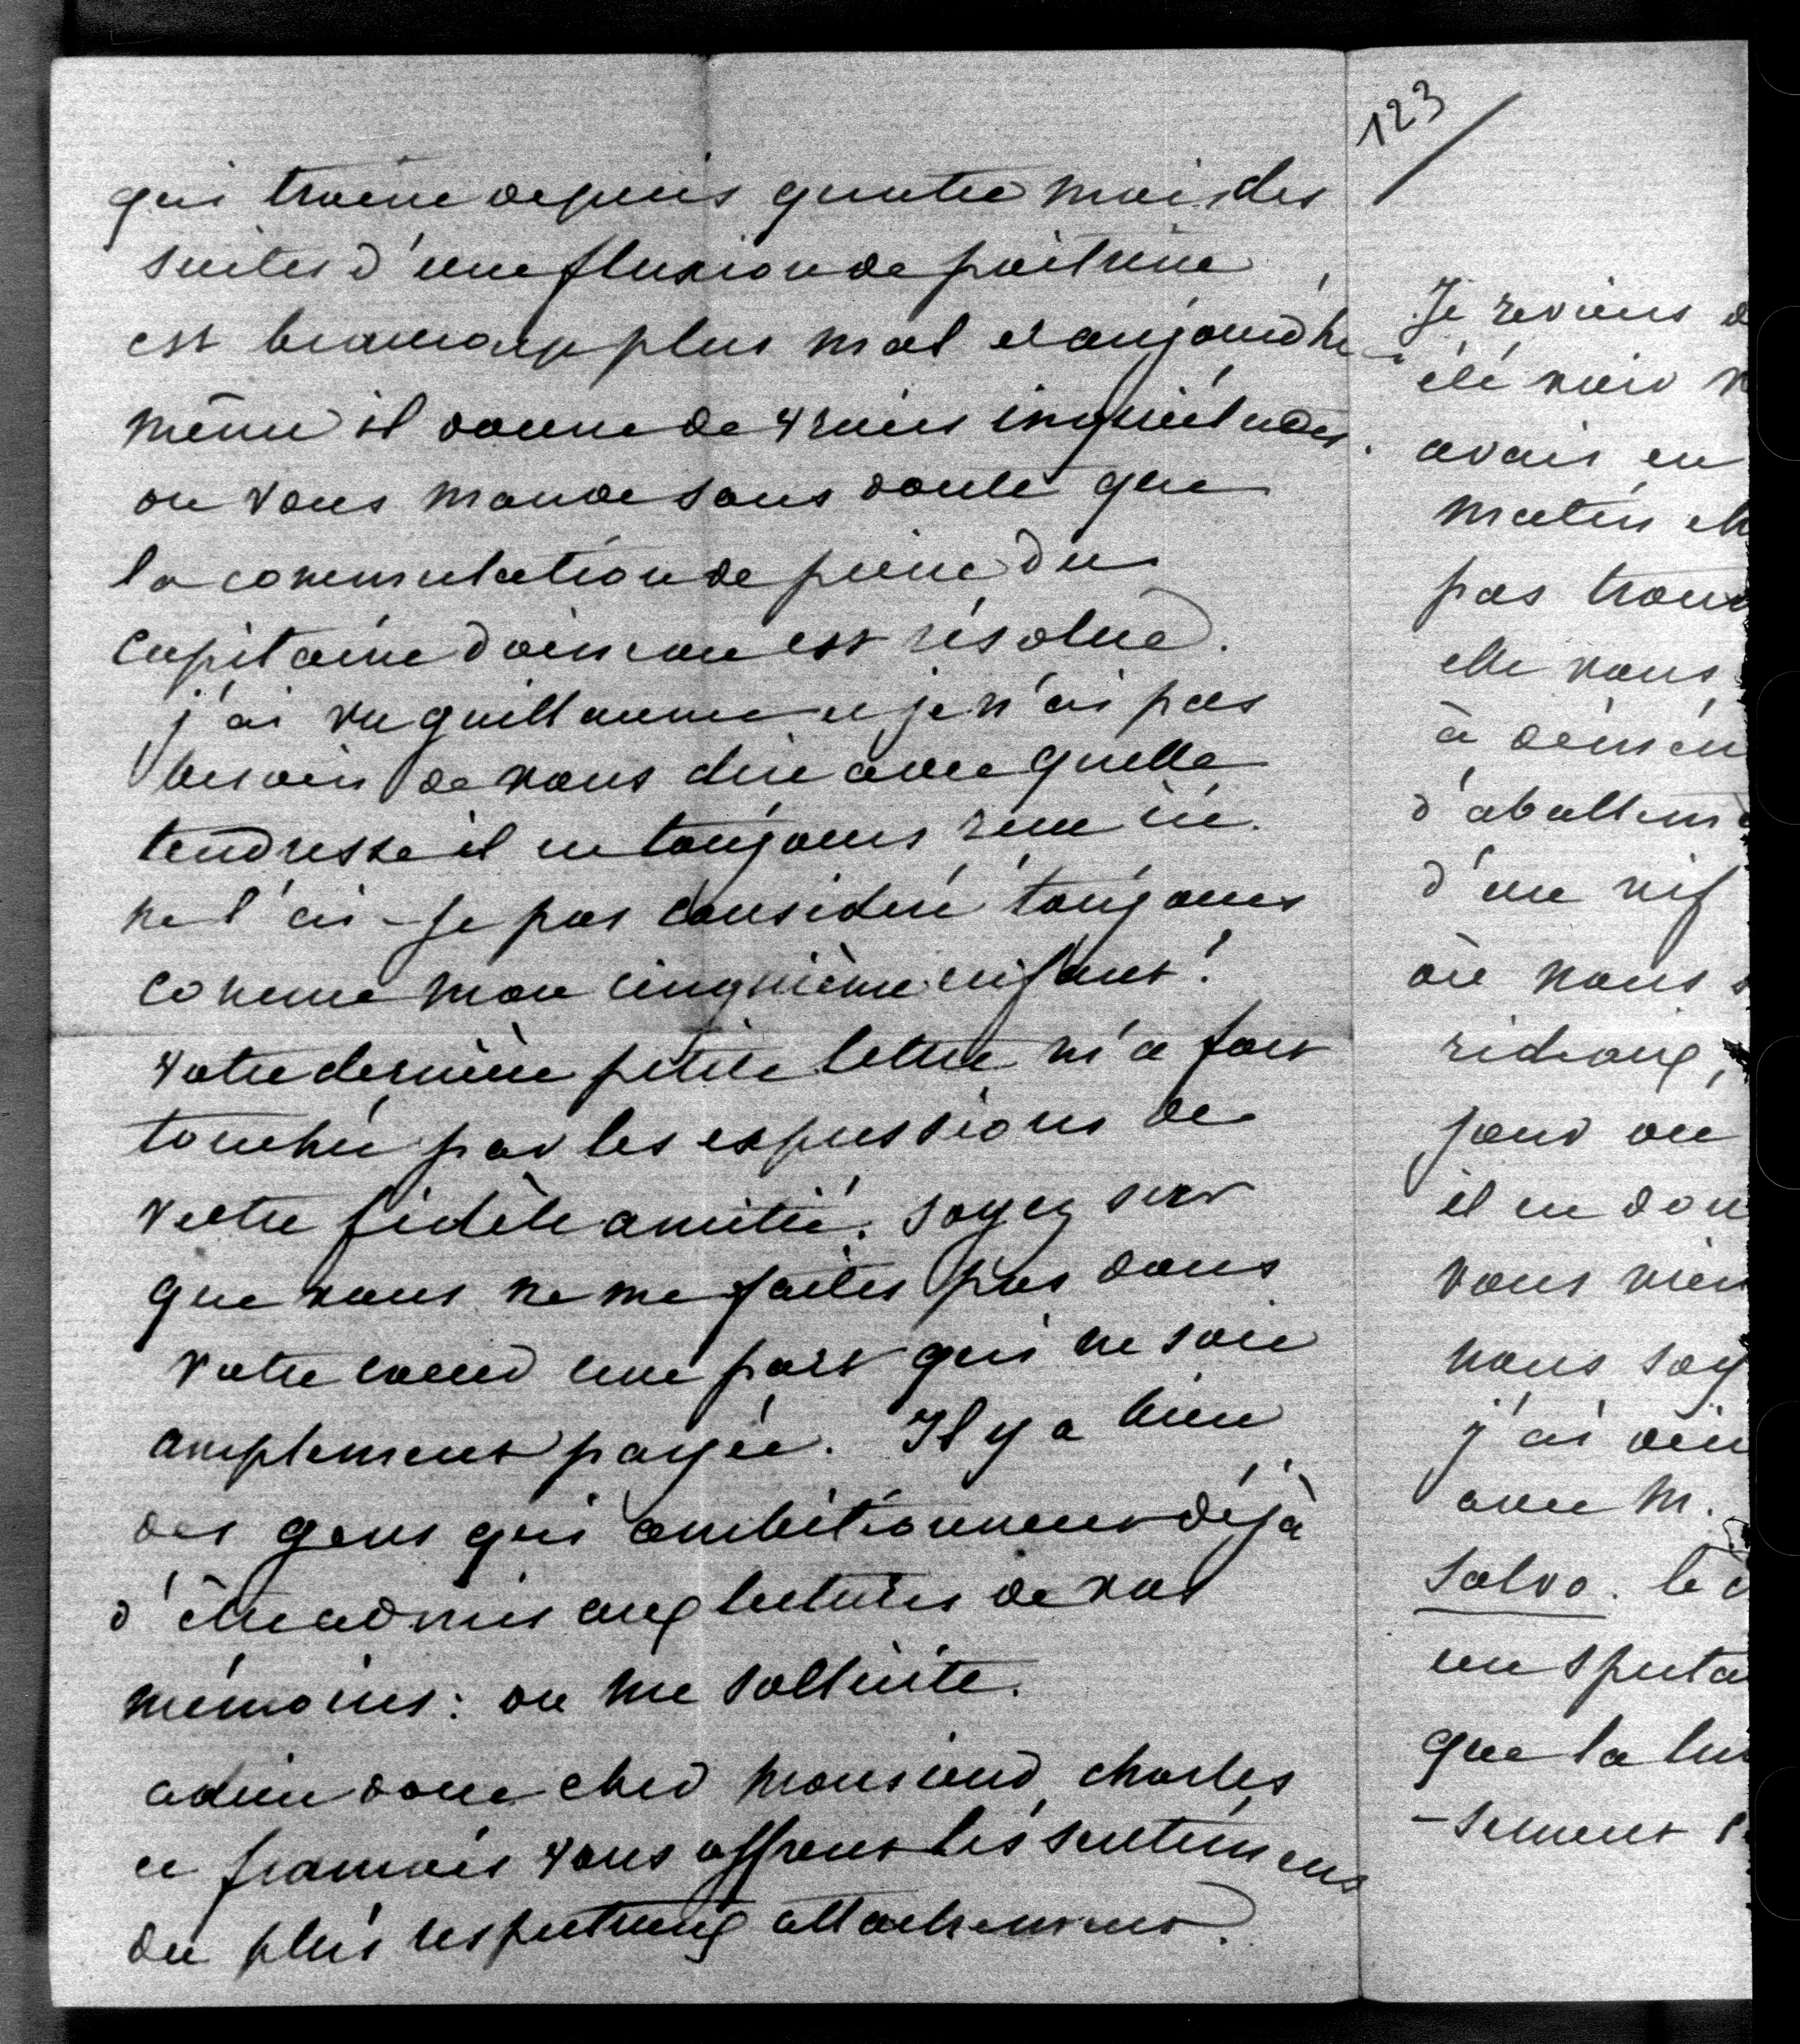 qui traîne depuis quatre mois des
suites d'une fluxion de poitrine
est beaucoup plus mal et aujourd'hui
même il donne de vraies inquiétudes.
on vous mande sans doute que
la commutation de peine du
capitaine doineau est résolue.
j'ai vu guillaume et je n'ai pas
besoin de vous dire avec quelle
tendresse il est toujours reçu ici.
ne l'ai-je pas considéré toujours
comme mon cinquième enfant!
votre dernière petite lettre m'a fort
touchée par les expressions de
votre fidèle amitié. soyez sur
que vous ne me faites pas dans
votre coeur une part qui ne soit
amplement payée. Il y a bien
des gens qui ambitionnent déjà
d'être admis aux lectures de vos
mémoires: on me sollicite.
adieu donc cher monsieur, charles
et françois vous offrent les sentimens
du plus respectueux attachement.
123
Je reviens d
été voir
avais eu
matin ch
pas trou
elle vous
à
d'abattem
d'un vif
où nous s
rideaux,
jour ou
il en don
vous vien
nous soy
j'ai
avec M.
Salvo. le
un
que la lu
-sement